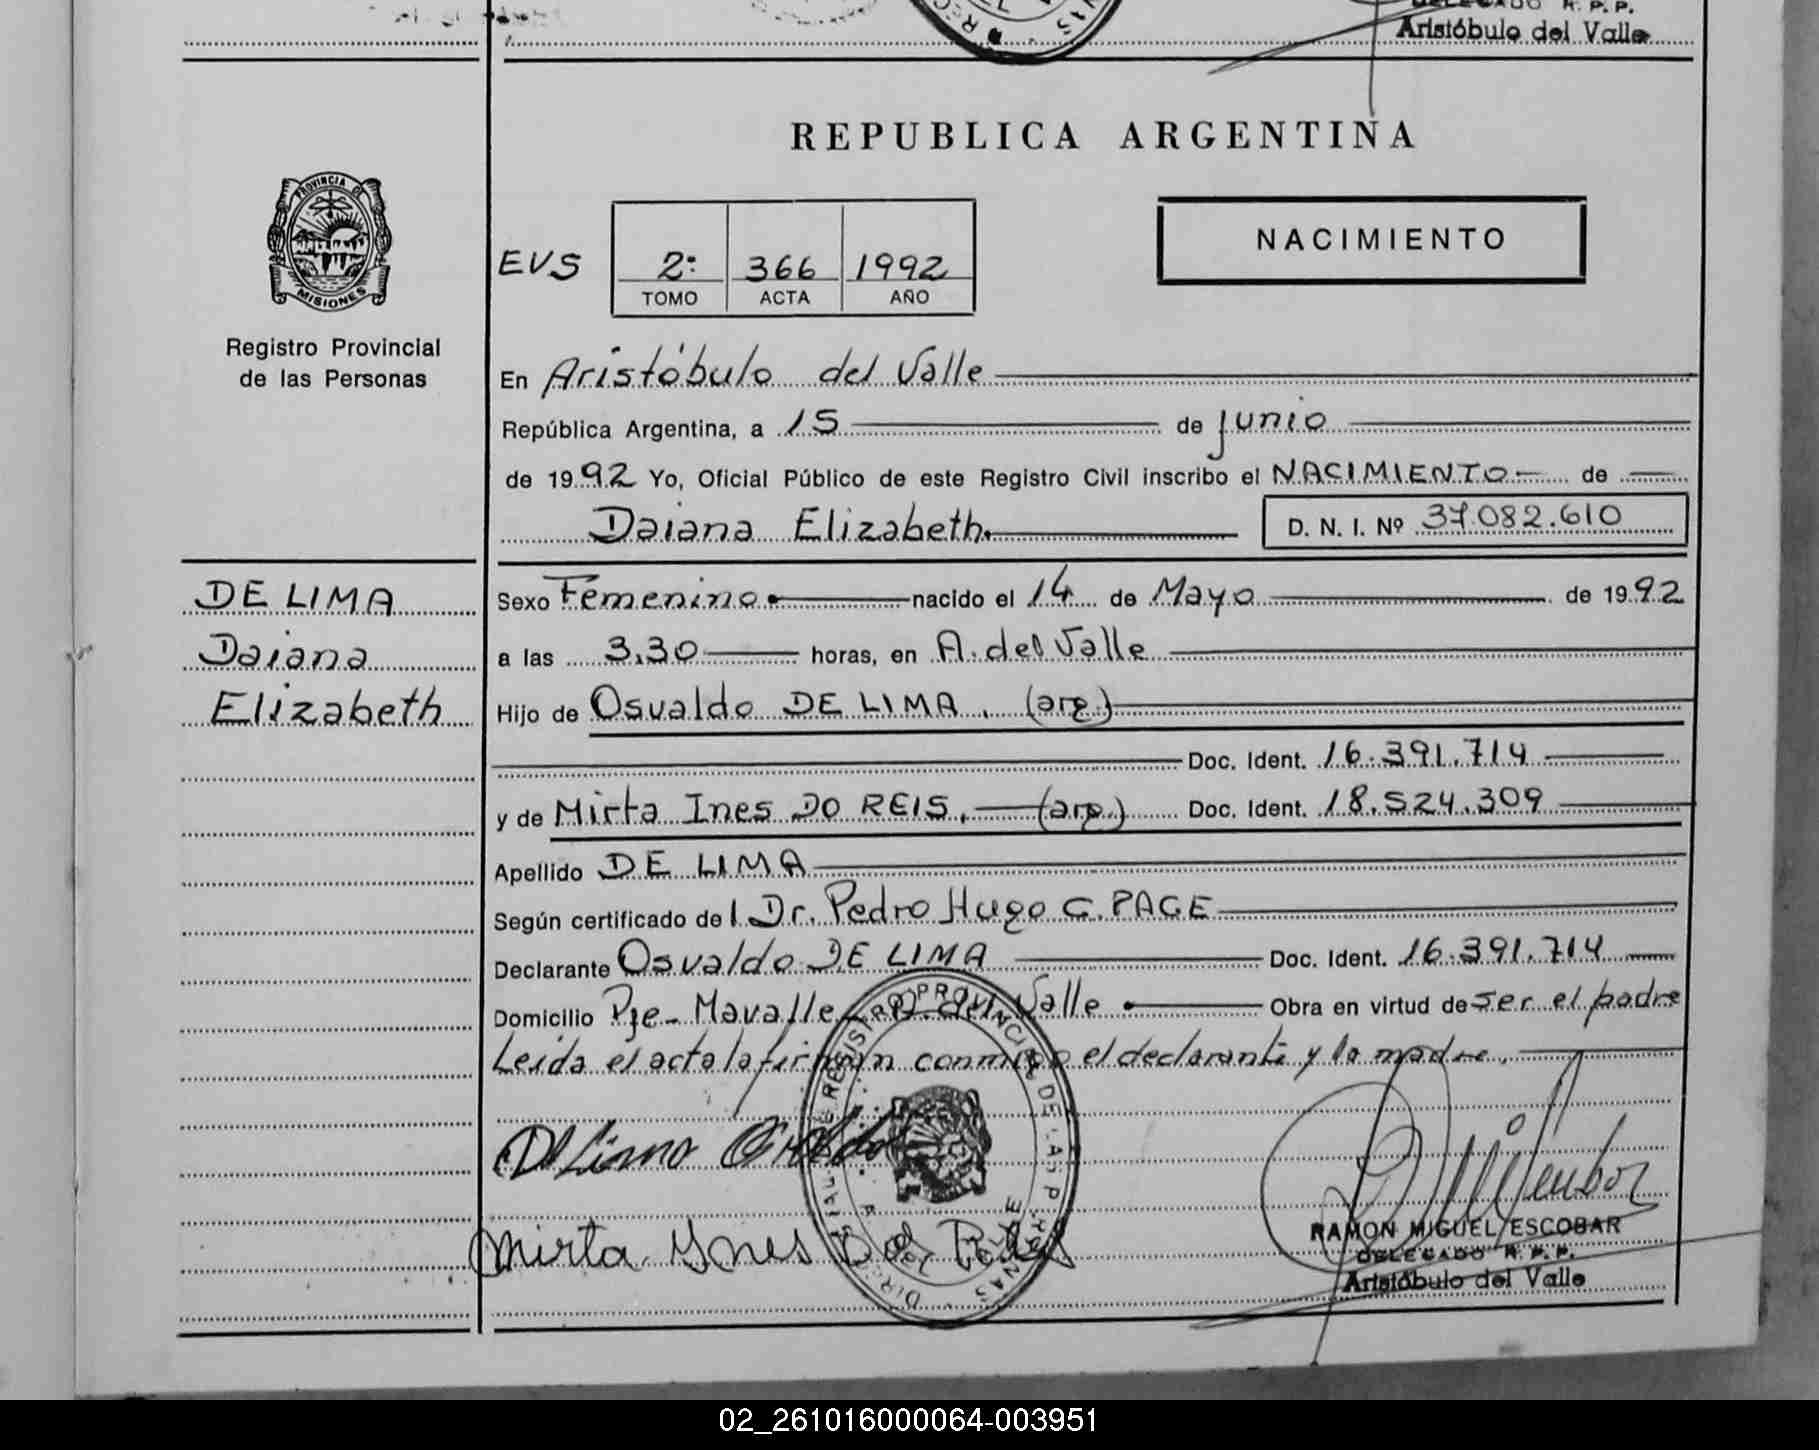 DELEGADO R. P. P.
Aristóbulo del Valle
REPUBLICA ARGENTINA
PROVINCIA DE
MISIONES
Registro Provincial
de las Personas
NACIMIENTO
EVS 2º 366 1992
TOMO ACTA AÑO
En Aristóbulo del Valle
República Argentina, a 15 de junio
de 1992 Yo, Oficial Público de este Registro Civil inscribo el NACIMIENTO de
Daiana Elizabeth. D. N. I. Nº 37.082.610
DE LIMA
Daiana
Elizabeth
Sexo Femenino nacido el 14 de Mayo de 1992
a las 3.30 horas, en A. del Valle
Hijo de Osvaldo DE LIMA. (arg)
Doc. Ident. 16.391.714
y de Mirta Ines DO REIS. (arg) Doc. Ident. 18.524.309
Apellido DE LIMA
Según certificado del Dr. Pedro Hugo C. PAGE
Declarante Osvaldo DE LIMA Doc. Ident. 16.391.714
Domicilio Pje- Mavalle- A. del Valle Obra en virtud de ser el padre
Leida el acta la firman conmigo el declarante y la madre.
De Lima Osvaldo
Mirta Ynes Do Reis
REGISTRO PROVINCIAL DE LAS PERSONAS
RAMON MIGUEL ESCOBAR
DELEGADO R. P. P.
Aristóbulo del Valle
02_261016000064-003951